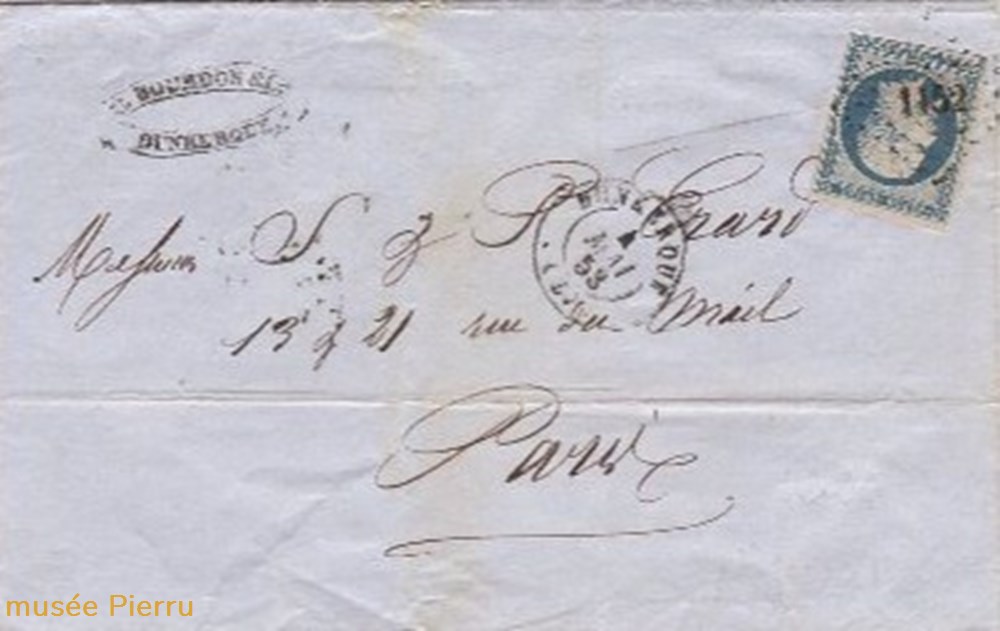 BOURDON &
DUNKERQUE
1152
DUNKERQUE
4
MAI
58
Messieurs S. & P. Erard
13 & 21 rue du Mail
Paris
musée Pierru